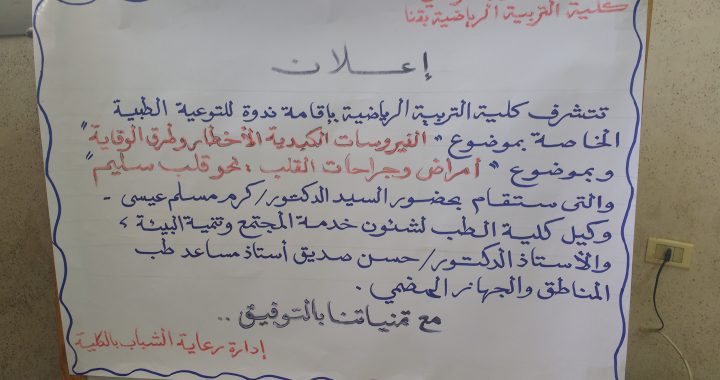 كلية التربية الرياضية بقنا
إعلان
تتشرف كلية التربية الرياضية بإقامة ندوة للتوعية الطبية
الخاصة بموضوع " الفيروسات الكبدية الأخطار وطرق الوقاية "
وبموضوع " أمراض وجراحات القلب : نحو قلب سليم "
والتى ستقام بحضور السيد الدكتور/ كرم مسلم عيسى -
وكيل كلية الطب لشئون خدمة المجتمع وتنمية البيئة ،
والأستاذ الدكتور/ حسن صديق أستاذ مساعد طب
المناطق والجهاز الهضمي .
مع تمنياتنا بالتوفيق ..
إدارة رعاية الشباب بالكلية